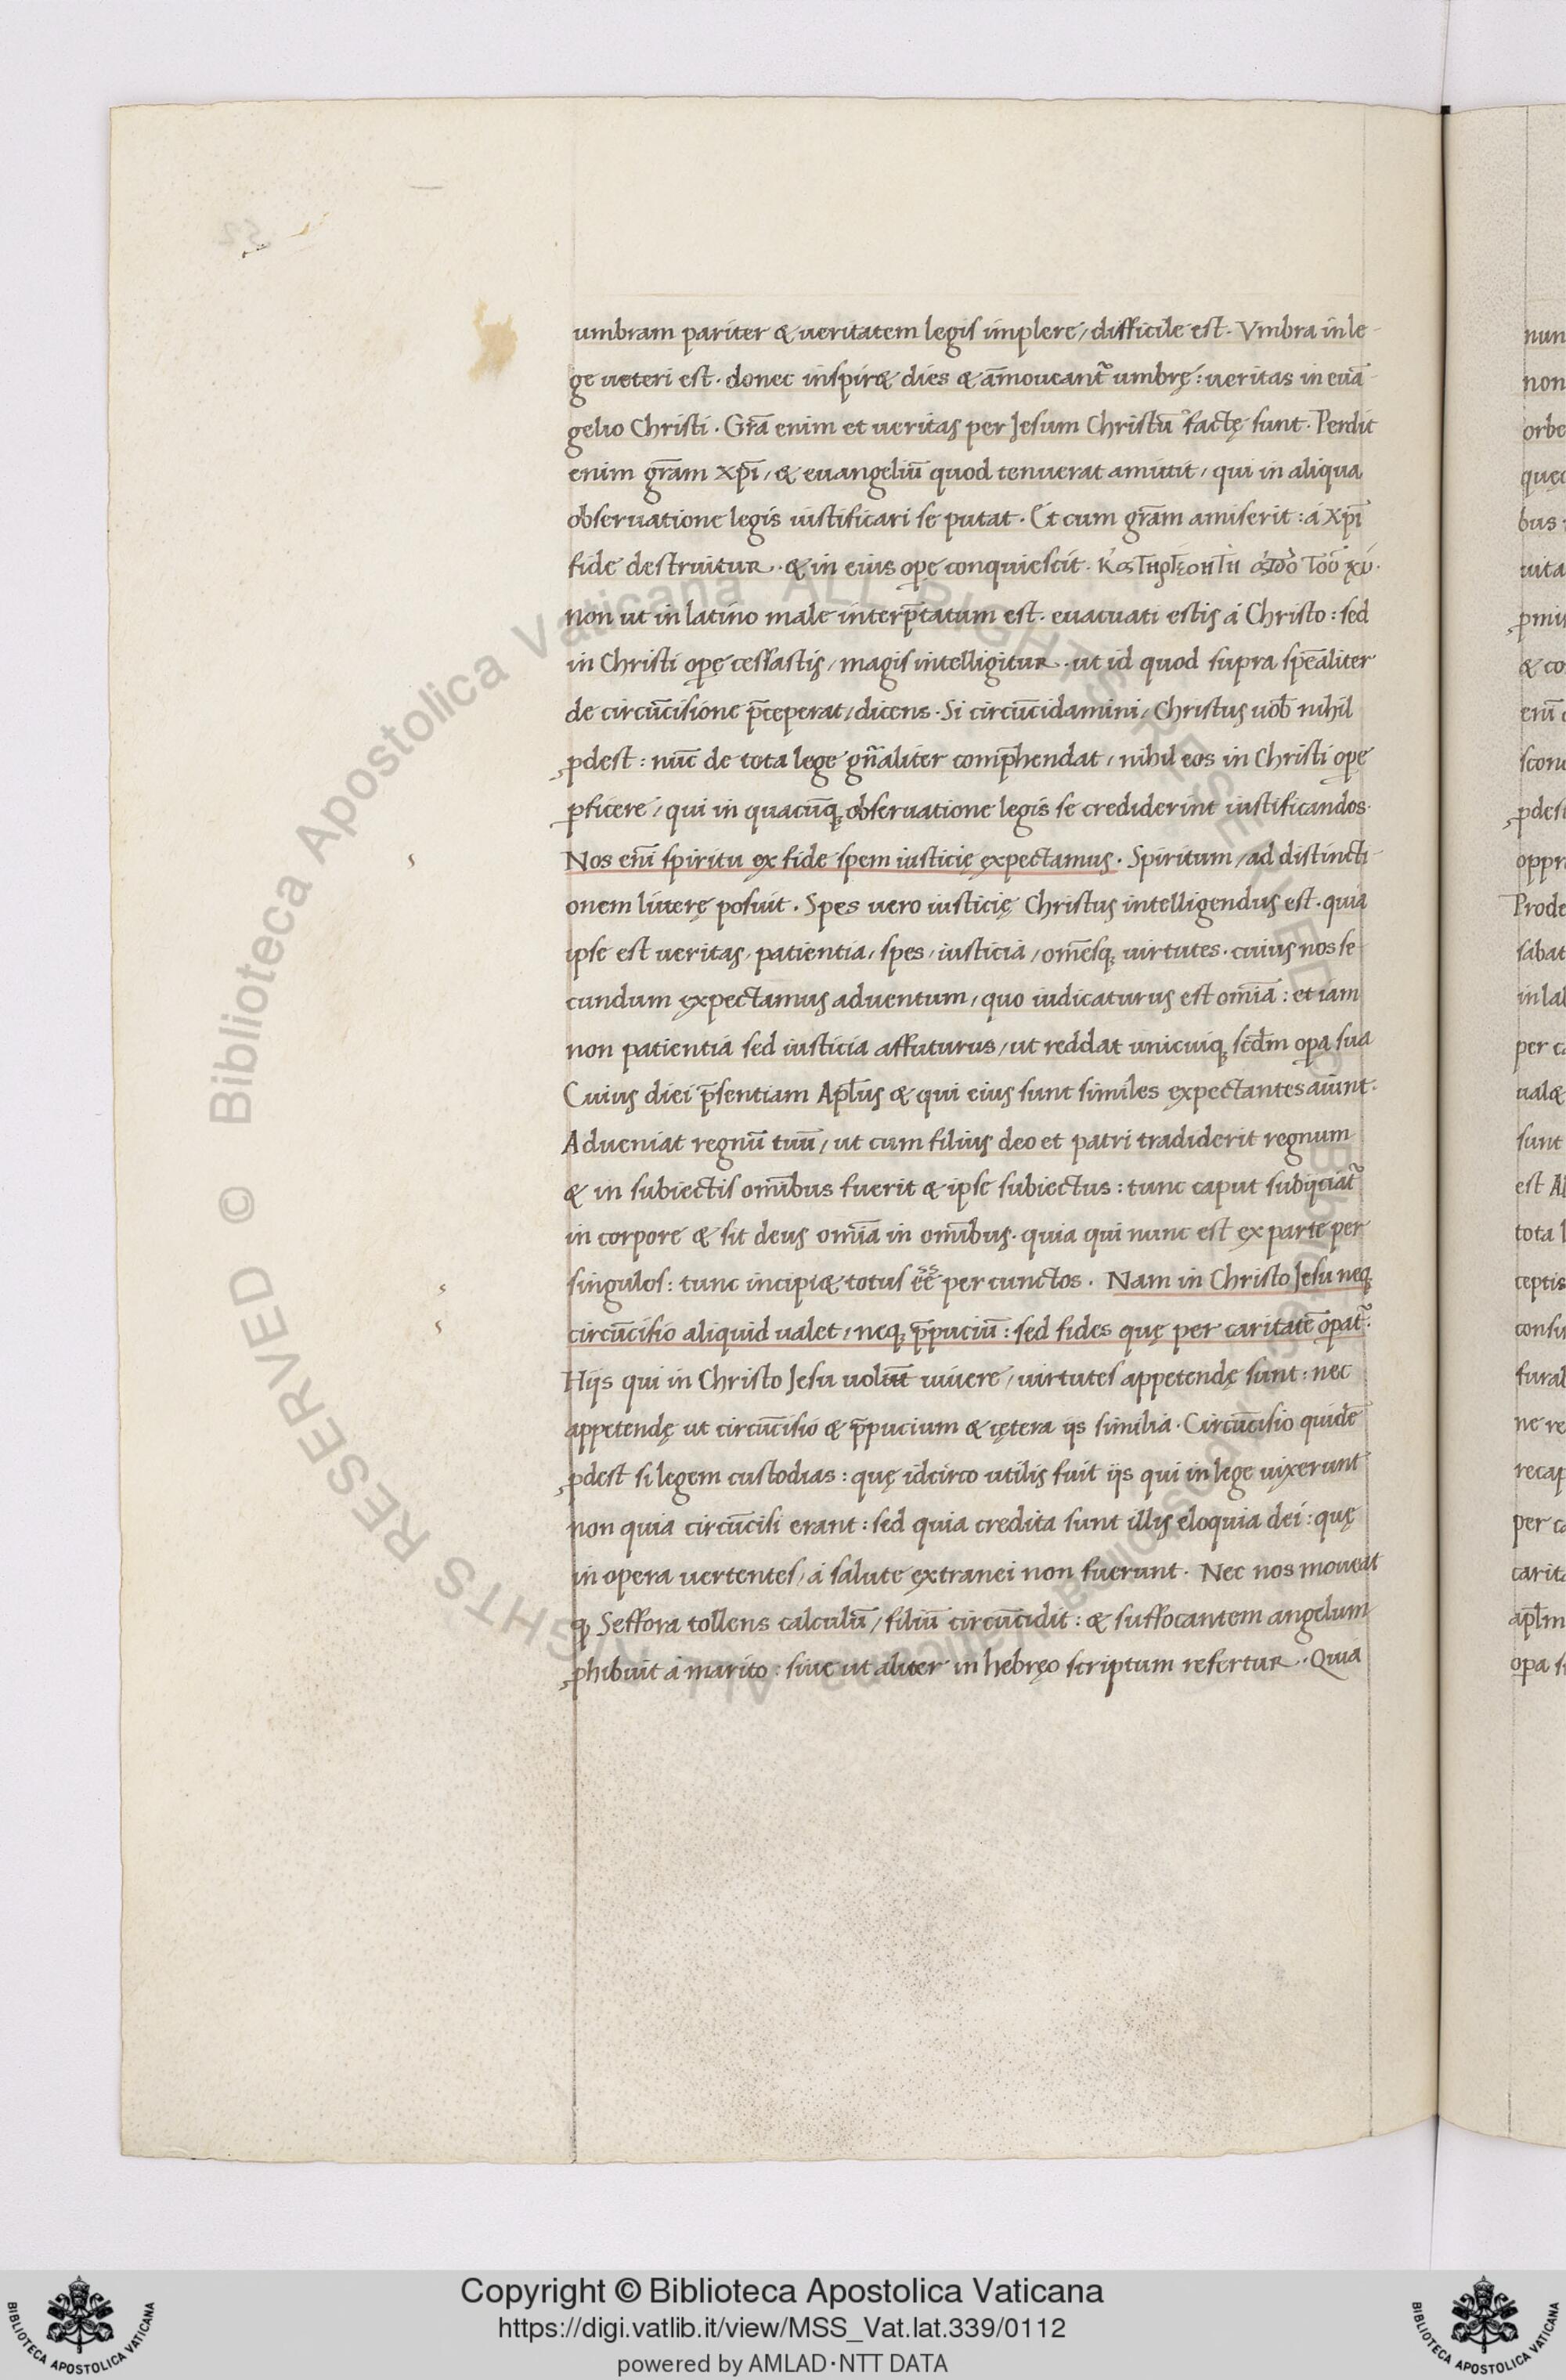 umbram pariter & ueritatem legis implere, difficile est. Vmbra in le-
ge ueteri est. donec inspir& dies & am̄oueantᷣ umbrę: ueritas in euā-
gelio Christi. Gr̄a enim et ueritas per Jesum Christū factę sunt. Perdit
enim gr̄am xp̄i, & euangeliū quod tenuerat amittit, qui in aliqua
obseruatione legis iustificari se putat. Et cum gr̄am amiserit: a Xp̄i
fide destruitur. & in eius opę conquiescit.
non ut in latino male interp̄tatum est. euacuati estis á Christo: sed
in Christi opę cessastis, magis intelligitur. ut id quod supra speāliter
de circūcisione p̄ceperat, dicens. Si circūcidamini, Christus uob̄ nihil
ꝓdest: nūc de tota lege gn̄aliter comp̄hendat, nihil eos in Christi ope
ꝓficere, qui in quacūq; obseruatione legis se crediderint iustificandos.
Nos eni̅ spiritu ex fide spem iusticię expectamus. Spiritum, ad distincti-
onem litterę posuit. Spes uero iusticię Christus intelligendus est. quia
ipse est ueritas, patientia, spes, iusticia, om̄esq; uirtutes. cuius nos se-
cundum expectamus aduentum, quo iudicaturus est om̄ia: et iam
non patientia sed iusticia affuturus, ut reddat unicuiq; scd̄m opa sua
Cuius diei p̄sentiam Apl̄us & qui eius sunt similes expectantes aiunt.
Adueniat regnū tuū, ut cum filius deo et patri tradiderit regnum
& in subiectis om̄ibus fuerit & ipse subiectus: tunc caput subijciatᷣ
in corpore & sit deus om̄ia in om̄ibus. quia qui nunc est ex parte per
singulos: tunc incipi& totus ēē per cunctos. Nam in Christo Jesu neq;
circūcisio aliquid ualet, neq; p̄puciū: sed fides quę per caritatē opatᷣ.
Hijs qui in Christo Jesu uolūt uiuere, uirtutes appetendę sunt: nec
appetendę ut circūcisio & p̄pucium & cętera ijs similia. Circūcisio quidē
ꝓdest si legem custodias: quę idcirco utilis fuit ijs qui in lege uixerunt
non quia circūcisi erant: sed quia credita sunt illis eloquia dei: quę
in opera uertentes, á salute extranei non fuerunt. Nec nos moueat
ꝙ Seffora tollens calculū, filiū circūcidit: & suffocantem angelum
ꝓhibuit á marito: siue ut aliter in hebręo scriptum refertur. Quia
Copyright © Biblioteca Apostolica Vaticana
https://digi.vatlib.it/view/MSS_Vat.lat.339/0112
powered by AMLAD·NTT DATA